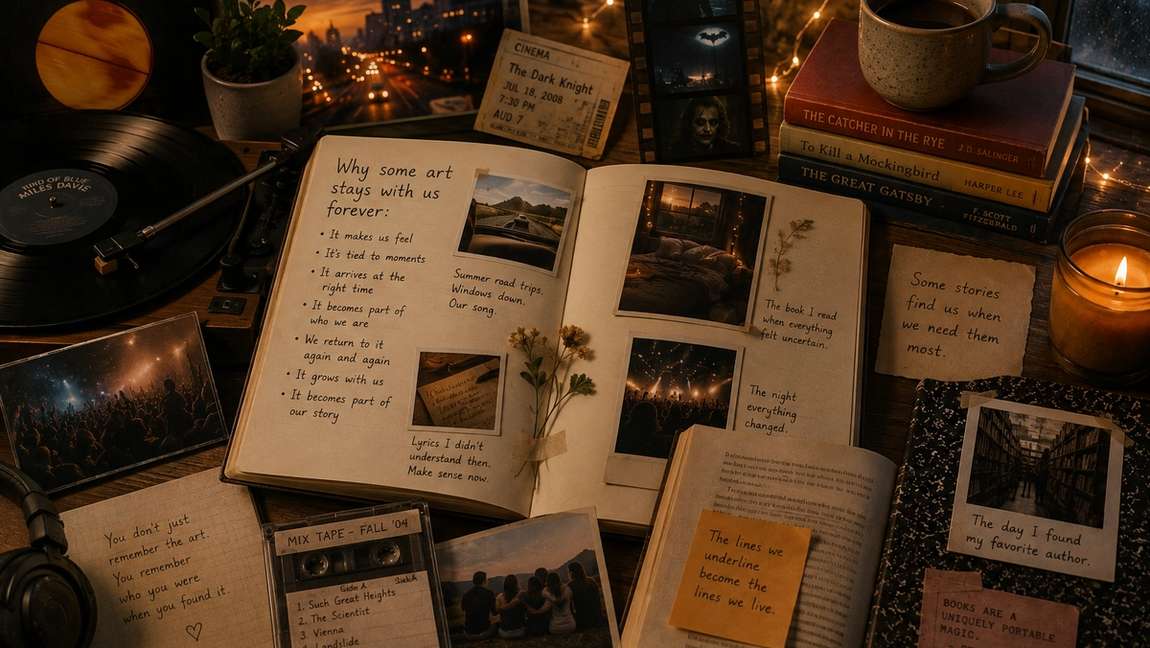 MILES DAVIS
CINEMA
The Dark Knight
JUL 18, 2008
7:30 PM
AUD 7
THE CATCHER IN THE RYE J.D. SALINGER
To Kill a Mockingbird HARPER LEE
THE GREAT GATSBY F. SCOTT
FITZGERALD
Why some art
stays with us
forever:
• It makes us feel
• It's tied to moments
• It arrives at the
right time
• It becomes part of
who we are
• We return to it
again and again
• It grows with us
• It becomes part of
our story
Summer road trips.
Windows down.
Our song.
Lyrics I didn't
understand then.
Make sense now.
The book I read
when everything
felt uncertain.
The night
everything
changed.
Some stories
find us when
we need them
most.
You don't just
remember the art.
You remember
who you were
when you found it.
MIX TAPE - FALL '04
Side A
1. Such Great Heights
2. The Scientist
3. Vienna
4. Landslide
The lines we
underline
become the
lines we live.
The day I found
my favorite author.
BOOKS ARE A
UNIQUELY PORTABLE
MAGIC.